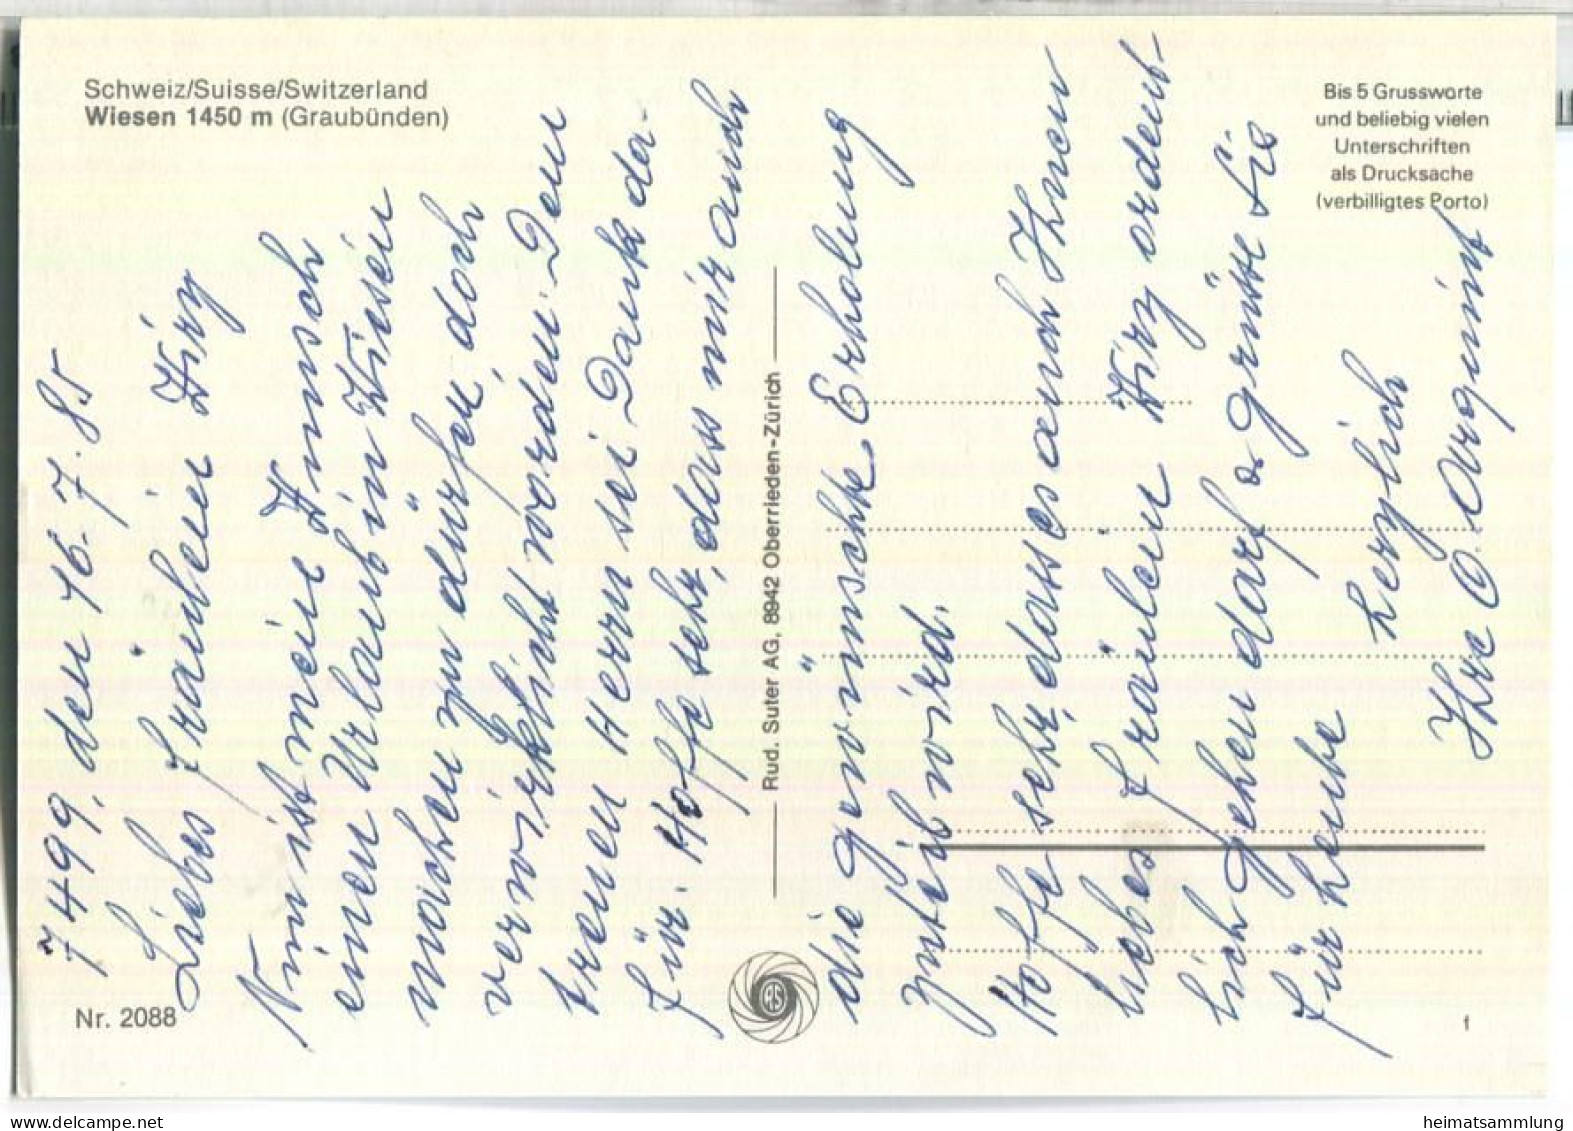 Schweiz/Suisse/Switzerland
Wiesen 1450 m (Graubünden)
Bis 5 Grussworte
und beliebig vielen
Unterschriften
als Drucksache
(verbilligtes Porto)
7499, den 16. 7. 85
Liebes Fräulein Wirz
Nun ist meine Wunsch
einen Urlaub in Wiesen
machen zu dürfen doch
verwirklicht worden. Dem
treuen Herrn sei Dank da-
für. Hoffe sehr, dass mir auch
die gewünschte Erholung
zuteil wird.
Hoffe sehr, dass es auch Ihnen
liebes Fräulein Wirz ordent-
lich gehen darf & grüsse Sie
für heute
herzlich
Ihre O.
Rud. Suter AG, 8942 Oberrieden-Zürich
RS
Nr. 2088
f
heimatsammlung